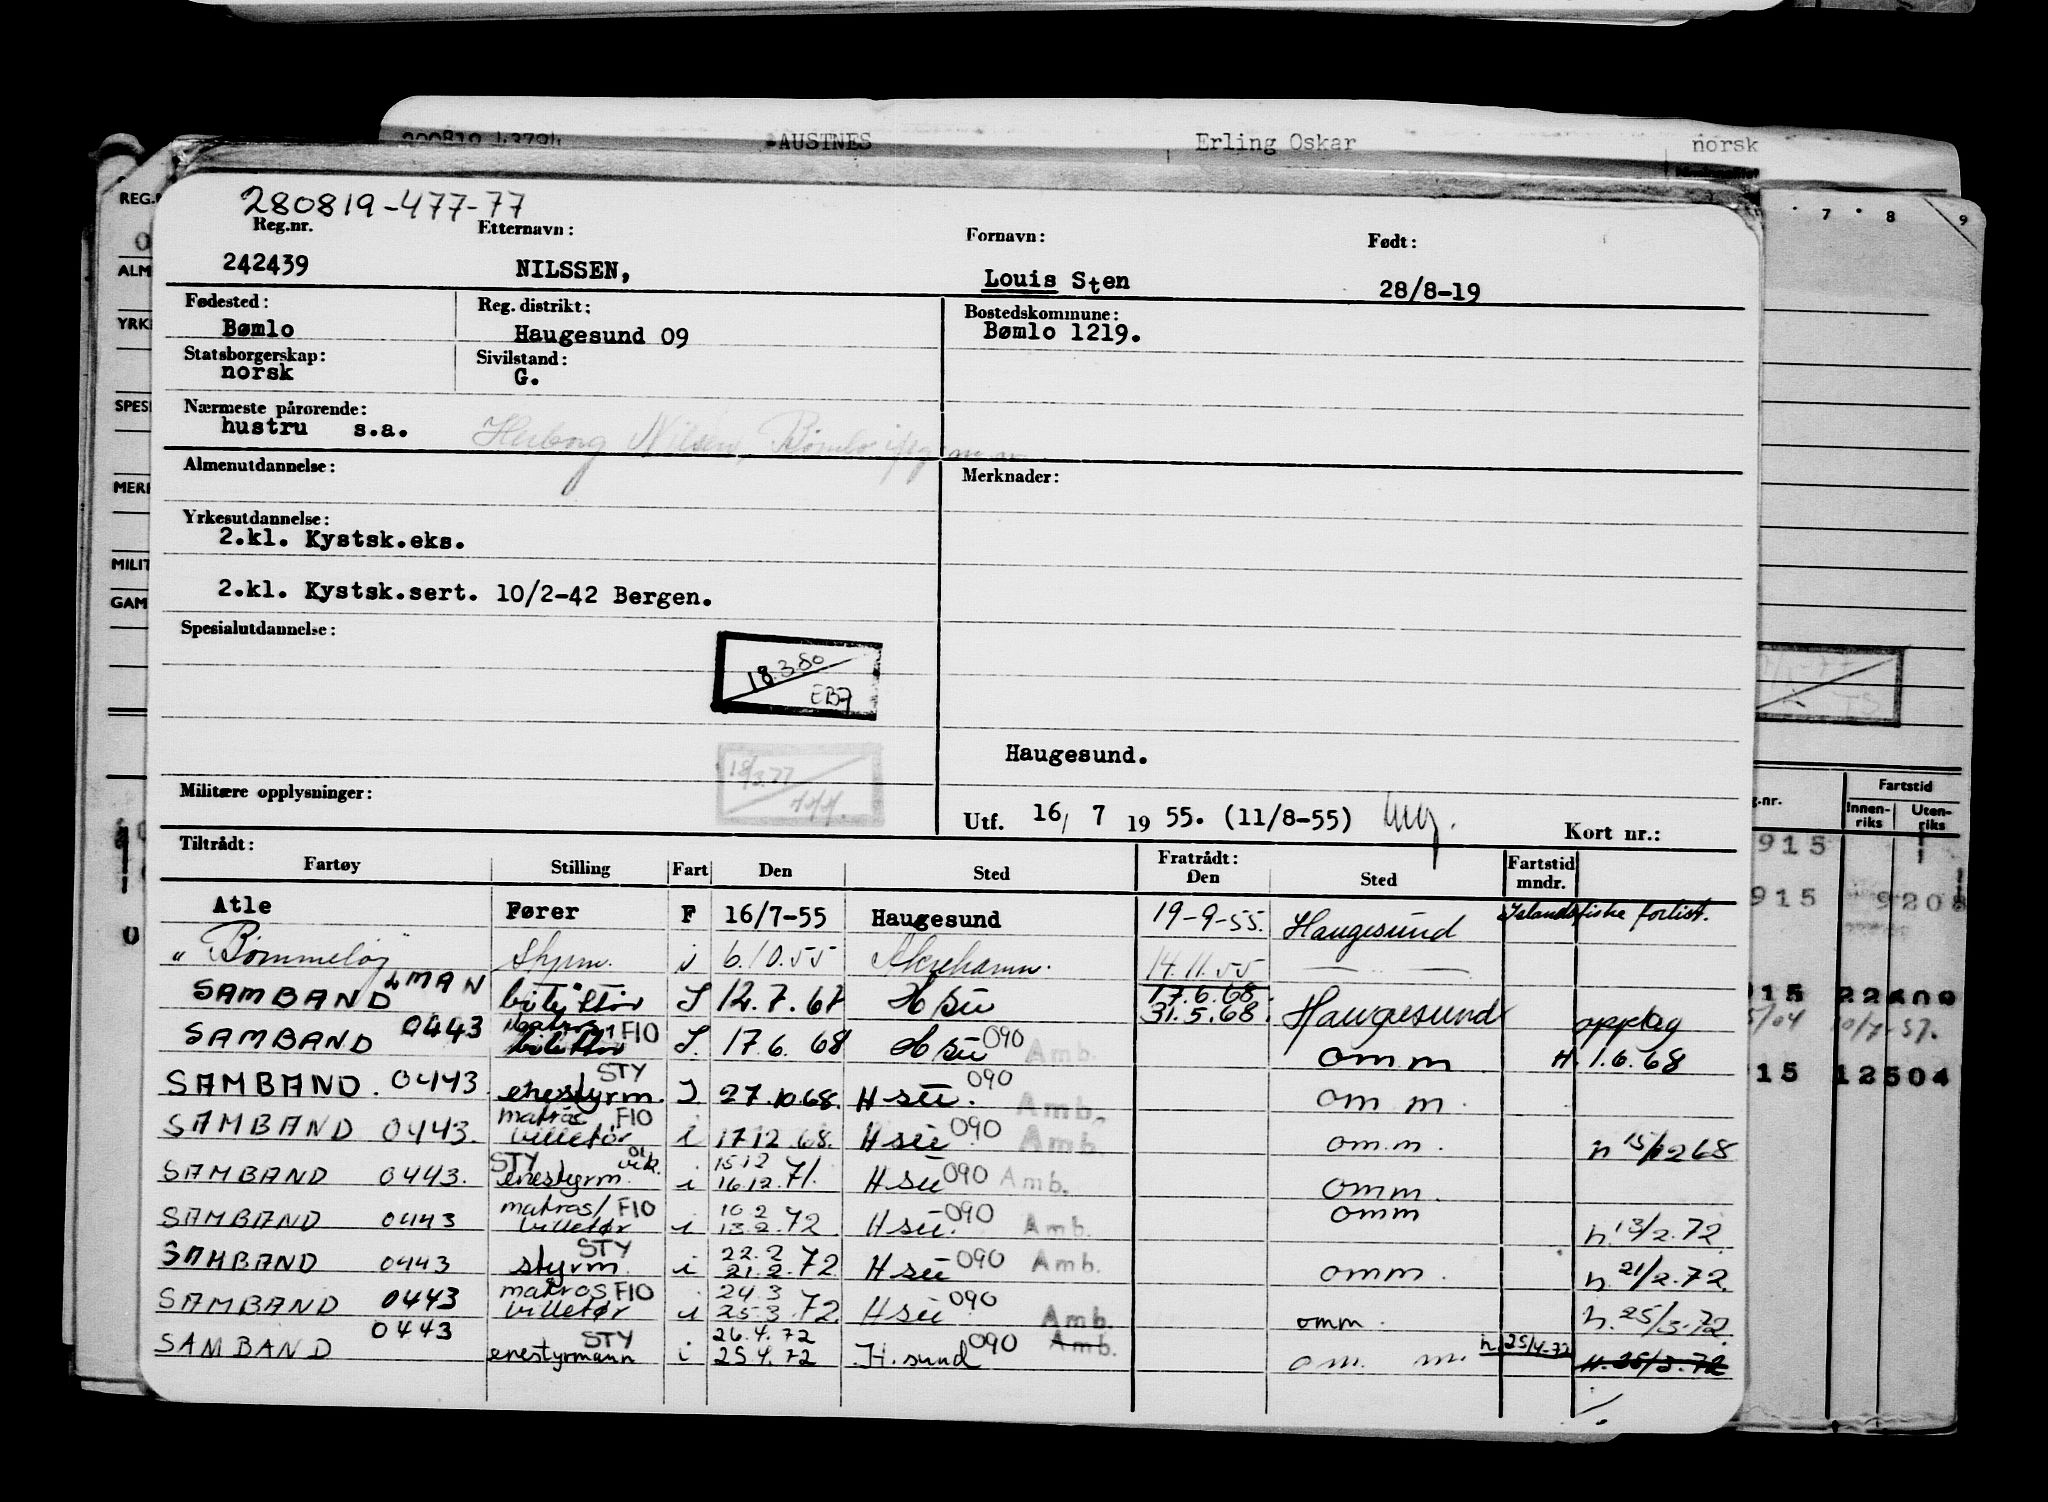 AUSTNES Erling Oskar norsk
280819-477-77
Reg.nr. Etternavn: Fornavn: Født:
242439 NILSSEN, Louis Sten 28/8-19
Fødested: Reg. distrikt: Bostedskommune:
Bømlo Haugesund 09 Bømlo 1219.
Statsborgerskap: Sivilstand:
norsk G.
Nærmeste pårørende:
hustru s.a. Nilsen, Bømlo
Almenutdannelse: Merknader:
Yrkesutdannelse:
2.kl. Kystsk.eks.
2.kl. Kystsk.sert. 10/2-42 Bergen.
Spesialutdannelse:
18.3.80
EB7
18/3.77
Haugesund.
Militære opplysninger:
Utf. 16/ 7 19 55. (11/8-55) Kort nr.:
Tiltrådt: Fratrådt: Fartstid mndr.
Fartøy Stilling Fart Den Sted Den Sted
Atle Fører F 16/7-55 Haugesund 19-9-55. Haugesund Islandsfiske forlist.
" Bømmeløy" Styrm. i 6.10.55 Åkrehamn. 14.11.55
SAMBAND I 12.7.67 H su 17.6.68. 31.5.68. Haugesund opptog
SAMBAND 0443 matros F10 I. 17.6. 68 H su 090 Amb. omm H. 1.6.68
SAMBAND. 0443. STY enestyrm. I 27.10.68. H su. 090 Amb. om m.
SAMBAND 0443. matros F10 billetør i 17.12.68. H su 090 Amb. omm. h 15/12 68
SAMBAND 0443. STY enestyrm. vik. i 15.12 16.12.71. H su 090 Amb. omm.
SAMBAND 0443 matros/ F10 billetør i 10.2 13.2.72 H su. 090 Amb. omm h. 13/2.72.
SAMBAND 0443 STY styrm. i 22.2 21.2.72 H su 090 Amb. omm. h 21/2.72.
SAMBAND 0443 matros F10 billetør i 24.3 25.3.72 H su 090 Amb. omm. h. 25/3.72.
SAMBAND 0443 STY enestyrmann i 26.4.72 25.4.72 H.sund 090 Amb. om. m. h. 25/4-72 H. 25/3.72
REG.
ALM
YRK
SPES
MER
MILIT
GAM
7 8 9
Fartstid
Innenriks Utenriks
915
915 9208
15 22400
10/7-57.
15 12504